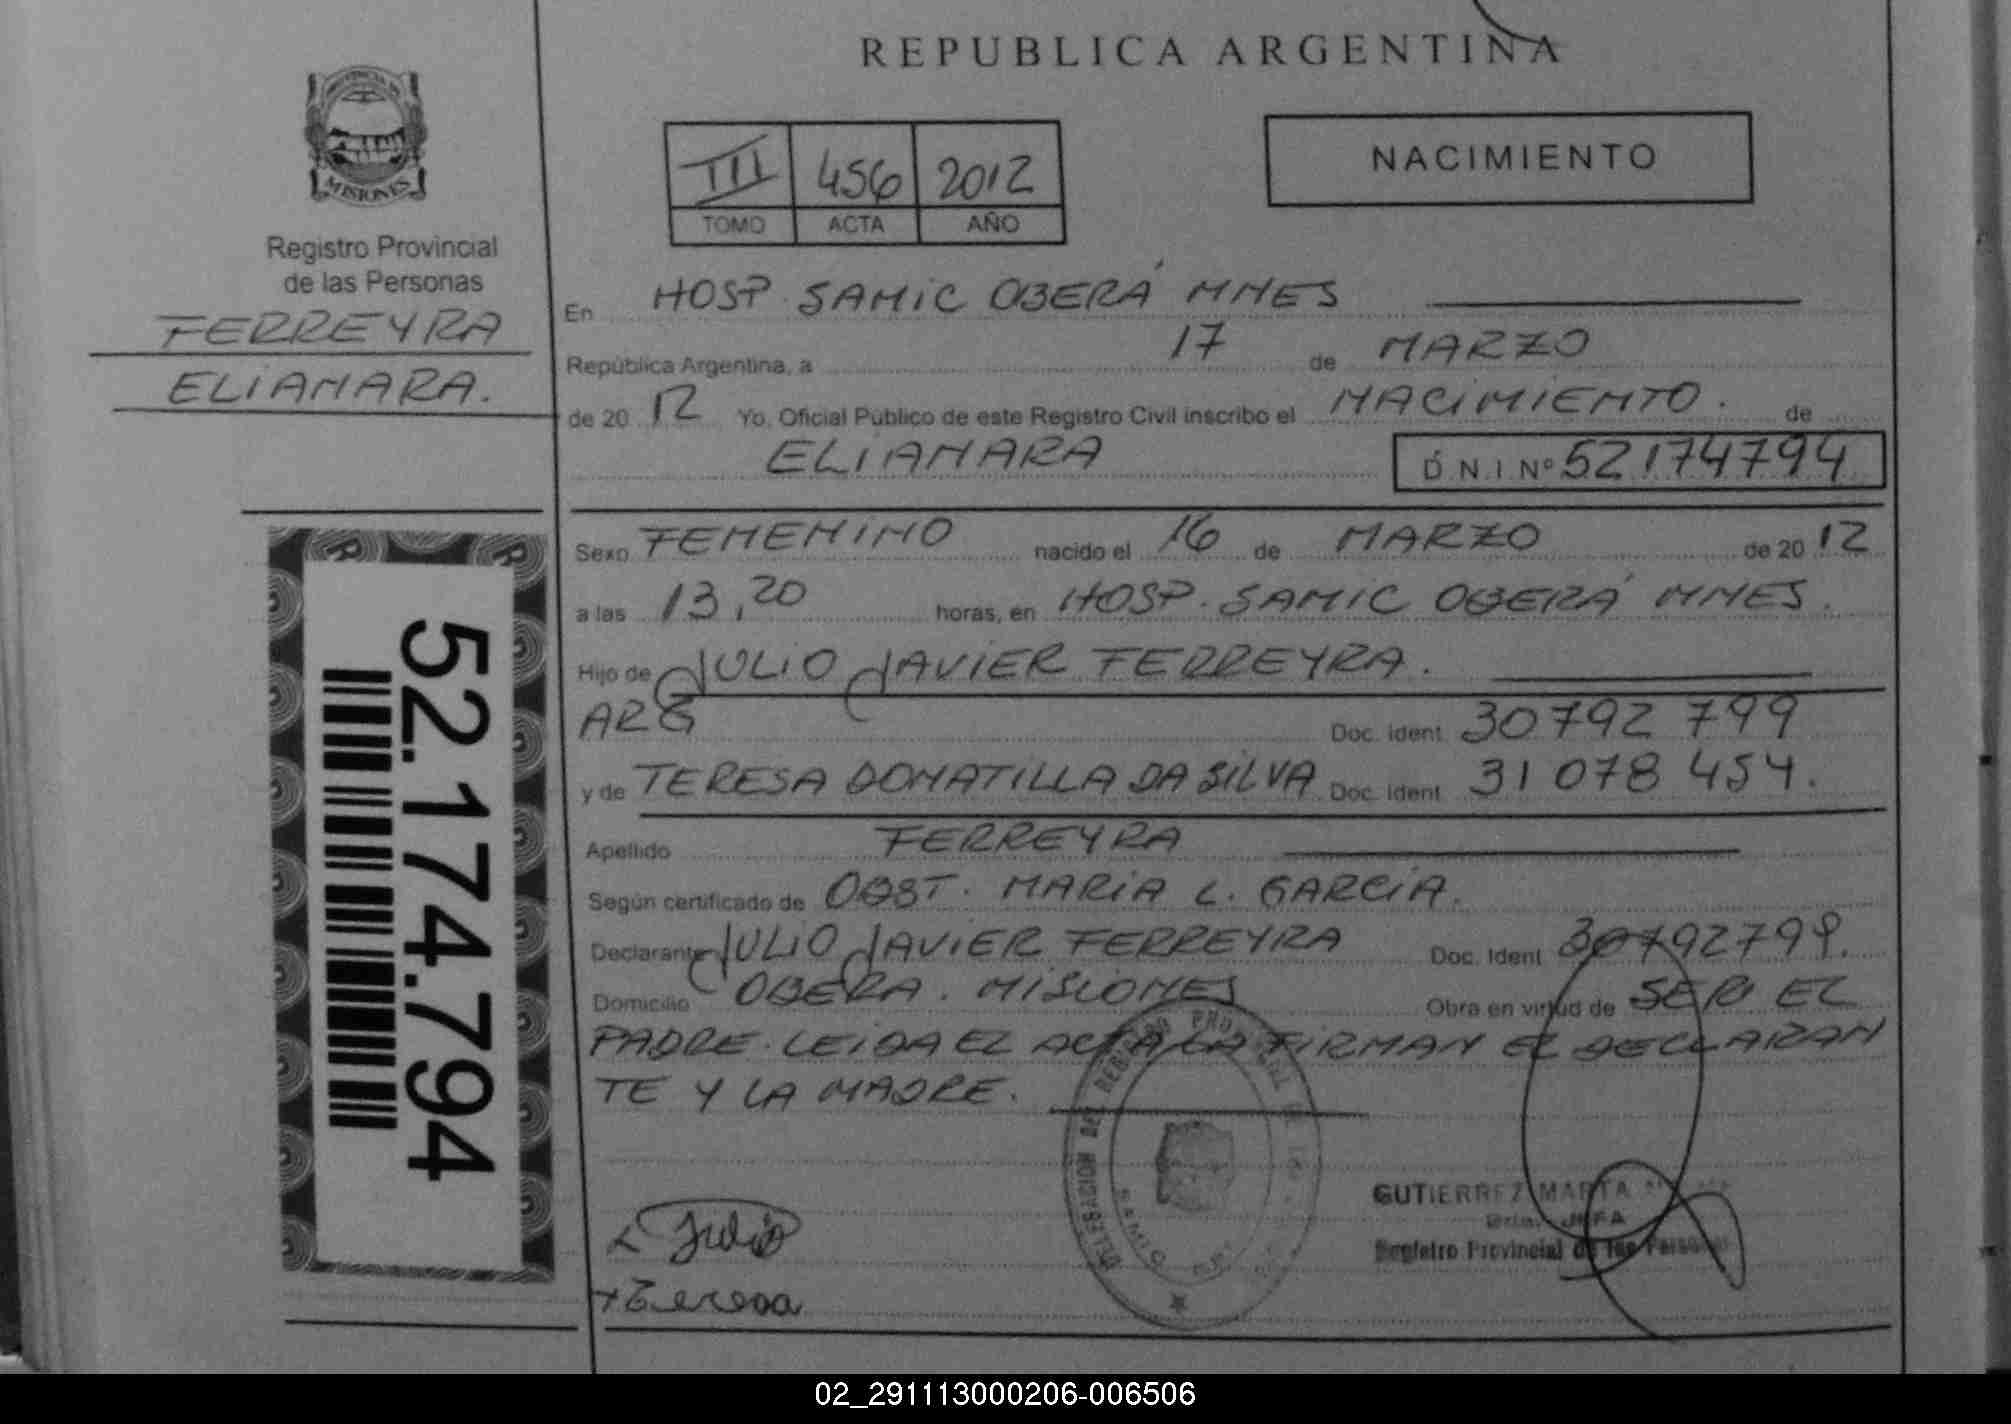 REPUBLICA ARGENTINA
PROVINCIA DE
MISIONES
Registro Provincial
de las Personas
FERREYRA
ELIANARA.
52.174.794
III 456 2012
TOMO ACTA AÑO
NACIMIENTO
En HOSP. SAMIC OBERÁ MNES
República Argentina, a 17 de MARZO
de 20 12 Yo, Oficial Público de este Registro Civil inscribo el NACIMIENTO. de
ELIANARA D.N.I. Nº 52174794
Sexo FEMENINO nacido el 16 de MARZO de 20 12
a las 13,20 horas, en HOSP. SAMIC OBERÁ MNES.
Hijo de JULIO JAVIER FERREYRA.
ARG Doc. Ident 30792 799
y de TERESA DONATILLA DA SILVA Doc. Ident 31 078 454.
Apellido FERREYRA
Según certificado de OBST. MARIA L. GARCIA.
Declarante JULIO JAVIER FERREYRA Doc. Ident 30792799.
Domicilio OBERA. MISIONES Obra en virtud de SER EL
PADRE. LEIDA EL ACTA LA FIRMAN EL DECLARAN
TE Y LA MADRE.
DELEGACION DEL REGISTRO PROVINCIAL DE LAS
SAMIC
GUTIERREZ MARTA
JEFA
Registro Provincial de las Personas
x Julio
x Teresa
02_291113000206-006506